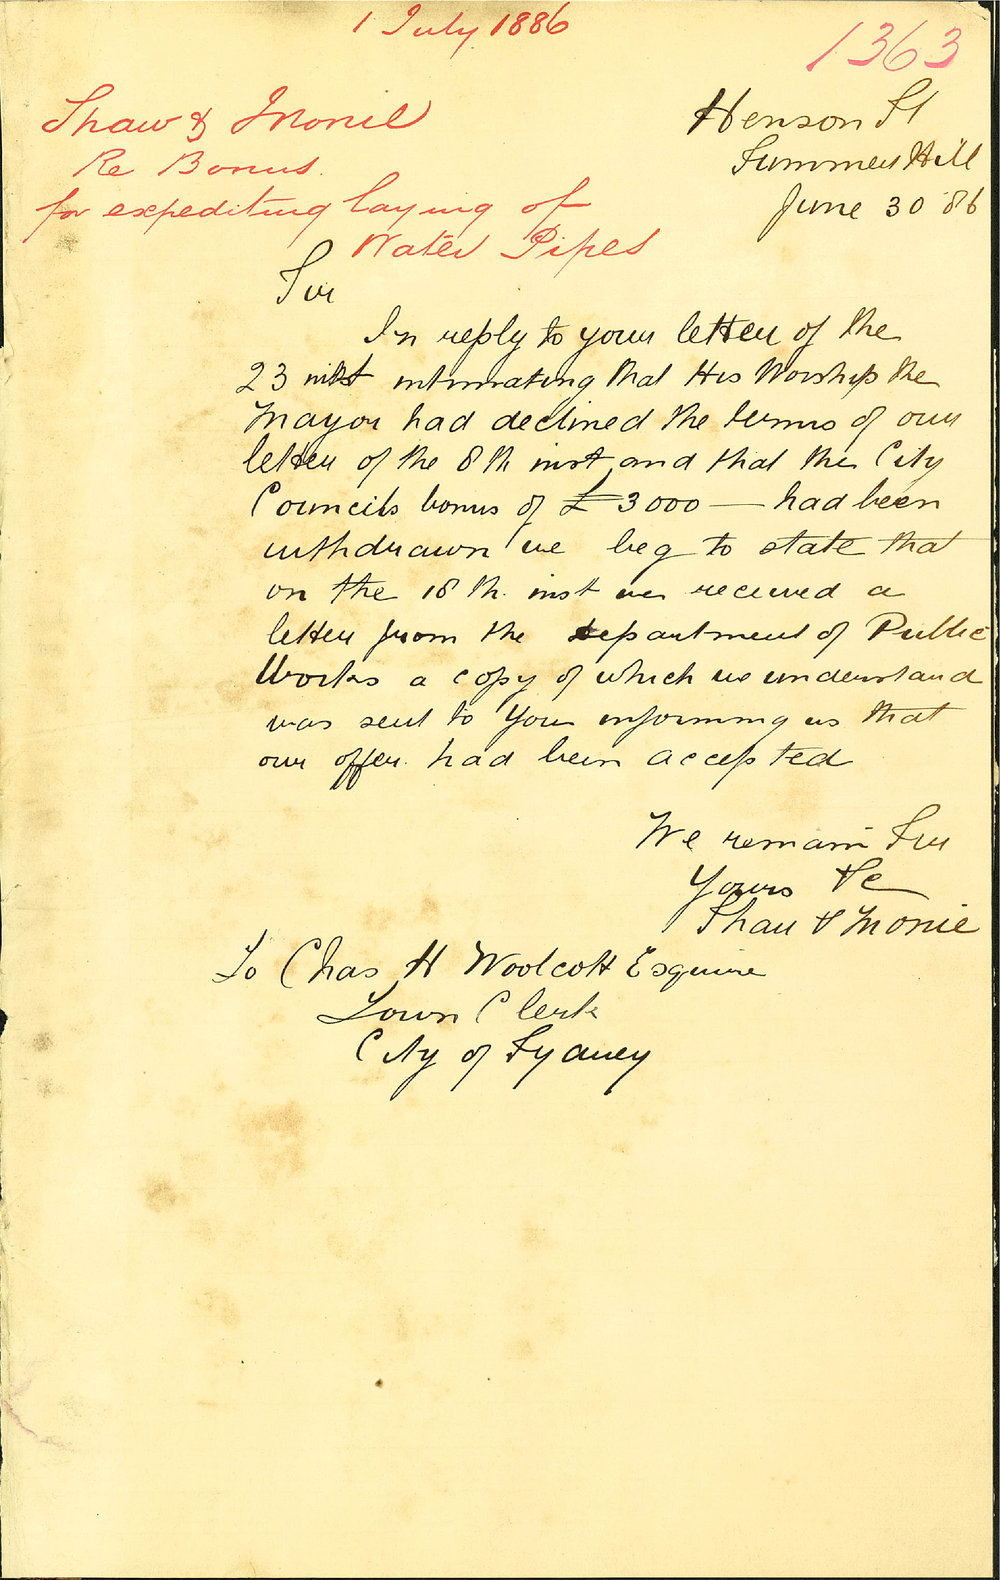 1 July 1886
1363
Shaw & Monie
Re Bonus
for expediting laying of
Water Pipes
Henson St
Summer Hill
June 30 '86
Sir
In reply to your letter of the
23 inst intimating that His Worship the
Mayor had declined the terms of our
letter of the 8th inst and that the City
Councils bonus of £3000 — had been
withdrawn we beg to state that
on the 18th. inst we received a
letter from the department of Public
Works a copy of which we understand
was sent to you informing us that
our offer had been accepted
We remain Sir
Yours &c
Shaw & Monie
To Chas H Woolcott Esquire
Town Clerk
City of Sydney